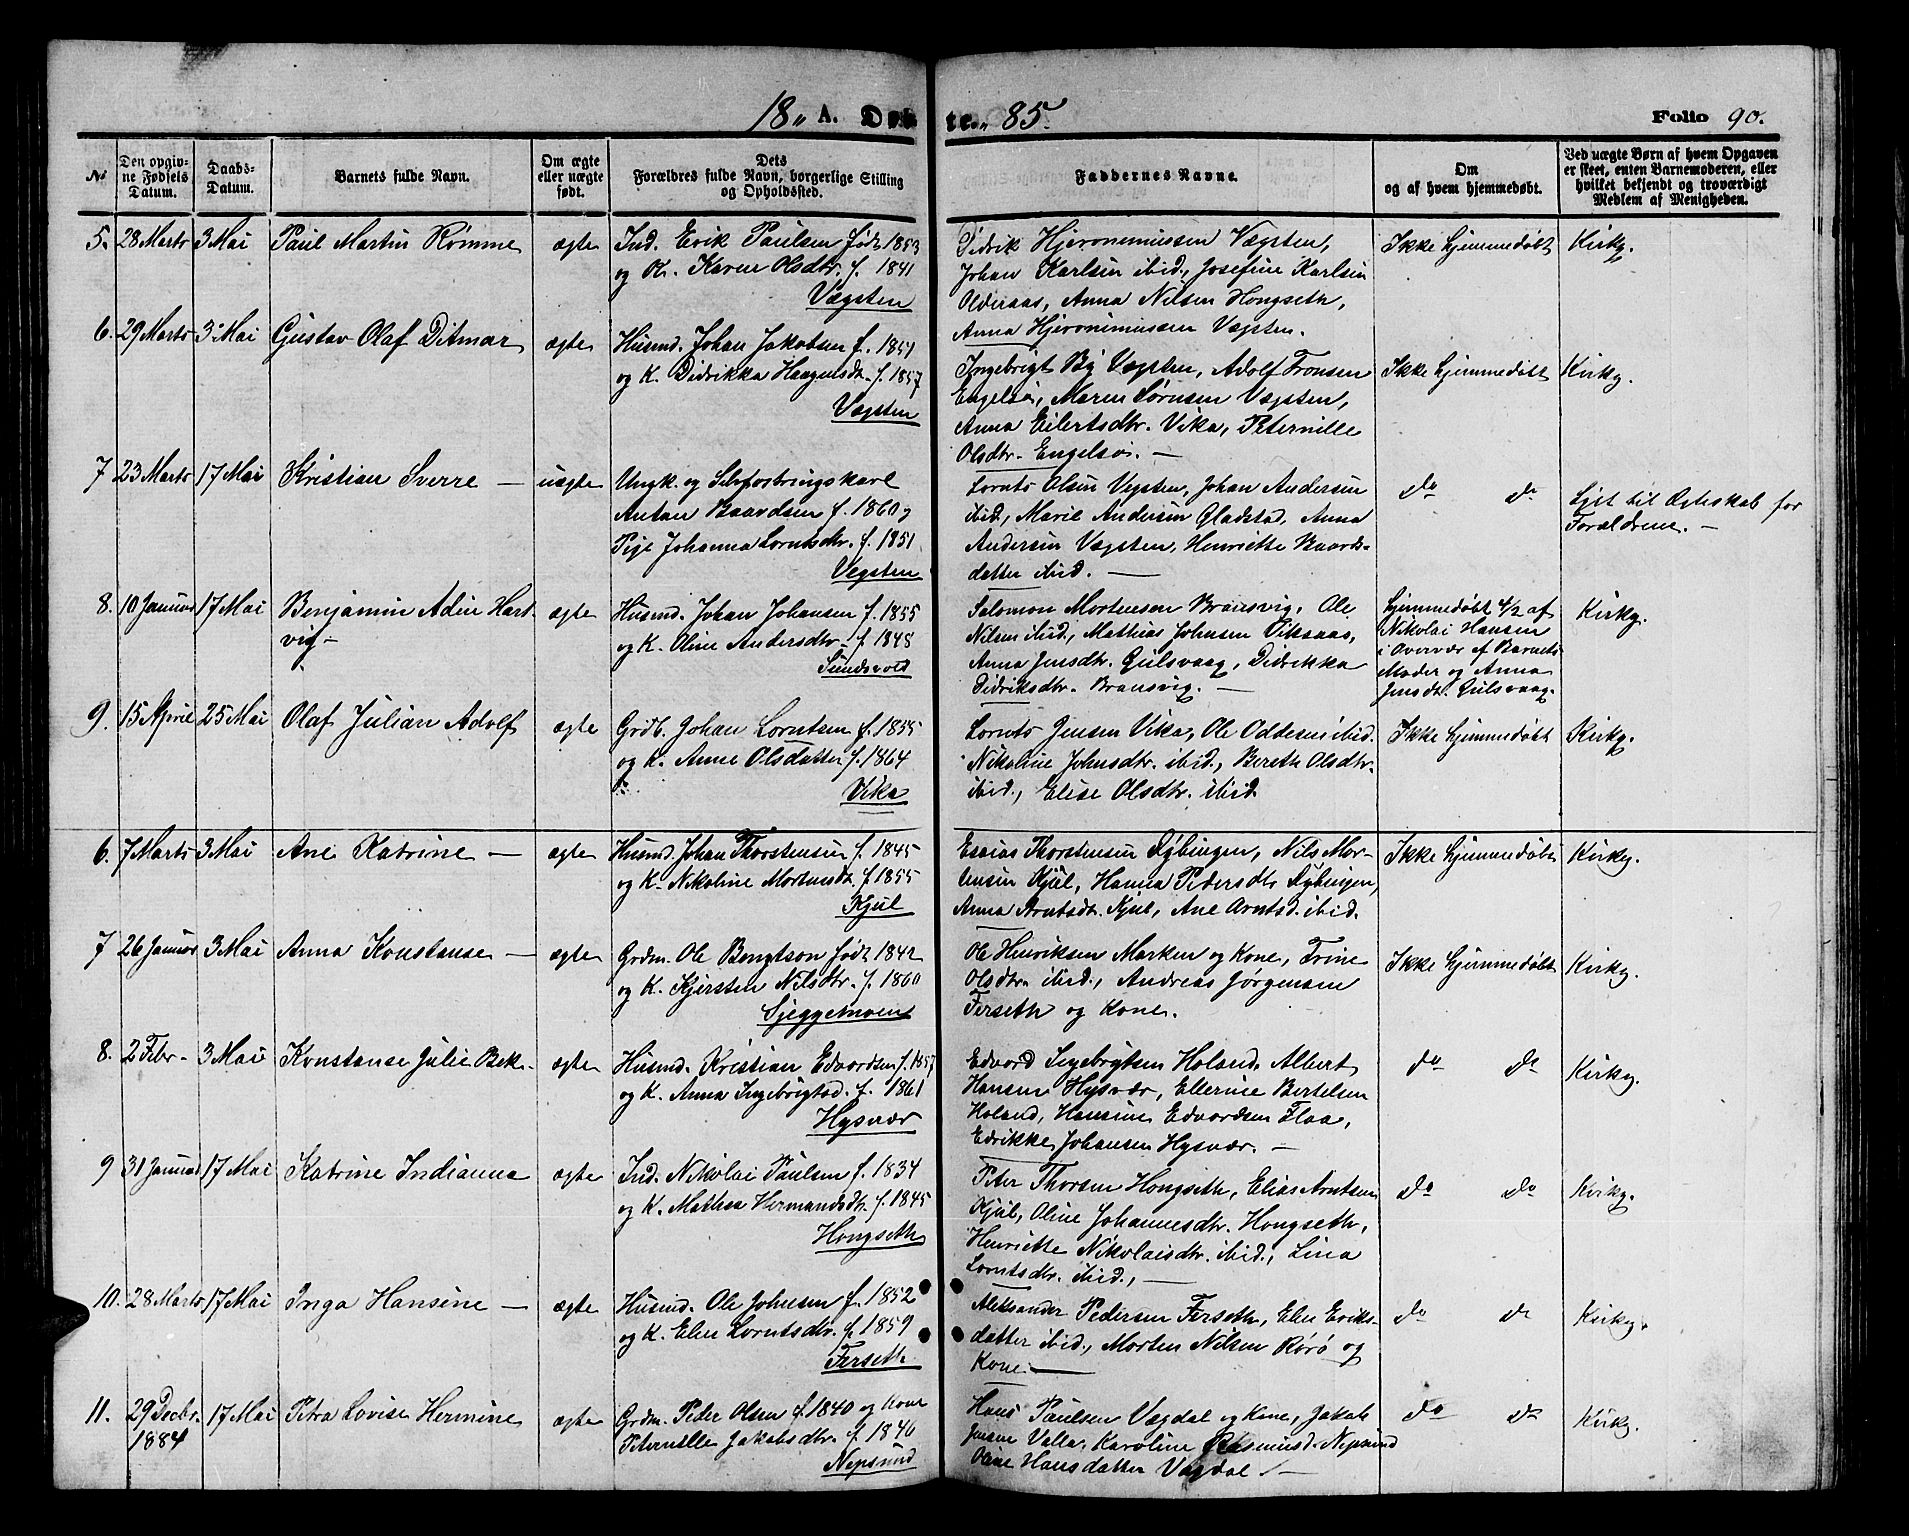 18„ A. Døbte. „85.
Folio 90.
No
Den opgivne Fødsels Datum.
Daabs-Datum.
Barnets fulde Navn.
Om ægte eller uægte født.
Dets Forældres fulde Navn, borgerlige Stilling og Opholdssted.
Faddernes Navne.
Om og af hvem hjemmedøbt.
Ved uægte Børn af hvem Opgaven er skeet, enten Barnemoderen, eller hvilket bekjendt og troværdigt Medlem af Menigheden.
5. 28 Marts 3 Mai Paul Martin Rømme ægte
Ind. Erik Paulsen fød 1853
og K. Karen Olsdtr. f. 1841
Vægsten
Didrik Hjeronimussen Vægsten,
Johan Karlsen ibid., Josefine Karlsen
Olderaas, Anna Nilsen Hongseth,
Anna Hjeronimussen Vægsten.
Ikke hjemmedøbt Kirkg.
6. 29 Marts 3 Mai Gustav Olaf Ditmar ægte
Husmd. Johan Jakobsen f. 1851
og K. Didrikka Haagensdt. f. 1857
Vægsten
Ingebrigt By Vægsten, Adolf Tronsen
Engelsøi, Maren Sørnsen Vægsten,
Anna Eilertsdtr. Vika, Peternille
Olsdtr. Engelsøi. —
Ikke hjemmedøbt Kirkg.
7 23 Marts 17 Mai Kristian Sverre — uægte
Ungk. og Selvfostringskarl
Antan Baardsen f. 1860 og
Pige Johanna Lorntsdtr. f. 1851
Vegsten
Lornts Olsen Vegsten, Johan Andersen
ibid., Marie Andersen Gladstad, Anna
Andersen Vægsten, Henriette Baards-
datter ibid. —
do do
Lyst til Ægteskab for
Forældrene. —
8. 10 Januar 17 Mai Benjamin Adin Hart-
vig — ægte
Husmd. Johan Johansen f. 1855
og K. Oline Andersdtr. f. 1848
Sundsvold
Salomon Mortensen Bransvig, Ole
Nilsen ibid., Mathias Johnsen
Anna Jensdtr. Gulsvaag, Didrikka
Didriksdtr. Bransvig. —
Hjemmedøbt 4/2 af
Nikolai Hansen
i Overvær af Barnets
Moder og Anna
Jensdt. Gulsvaag.
Kirkg.
9. 15 April 25 Mai Olaf Julian Adolf ægte
Grdb. Johan Lorntsen f. 1855
og K. Anne Olsdatter f. 1864
Vika
Lornts Jensen Vika, Ole Oddesen ibid.
Nikoline Johnsdtr. ibid., Bereth Olsdtr.
ibid., Elise Olsdtr. ibid.
Ikke hjemmedøbt Kirkg.
6. 7 Marts 3 Mai Ane Katrine — ægte
Husmd. Johan Thorstensen f. 1845
og K. Nikoline Mortensdt. f. 1855
Kjul
Esaias Thorstensen Dybingen, Nils Mor-
tensen Kjul, Hanna Pedersdtr Dybingen,
Anna Arntsdt. Kjul, Ane Arntsd. ibid.
Ikke hjemmedøbt Kirkg.
7 26 Januar 3 Mai Anna Konstanse — ægte
Grdm. Ole Bengtson fød 1842
og K. Kjersten Nilsdtr. f. 1860
Sjeggemoen
Ole Henriksen Marken og Kone, Trine
Olsdtr. ibid., Andreas Jørgensen
Ferseth og Kone.
Ikke hjemmedøbt Kirkg.
8. 2 Febr. 3 Mai Konstanse Julie Bek. ægte
Husmd. Kristian Edvardsen f. 1857
og K. Anna Ingebrigtsd. f. 1861
Hysvær
Edvard Ingebrigtsen Holand, Albert
Hansen Hysvær, Ellerine Bertelsen
Holand, Hansine Edvardsen Flaa,
Edrikke Johansen Hysvær. —
do do Kirkg.
9 31 Januar 17 Mai Katrine Indianna ægte
Ind. Nikolai Paulsen f. 1834
og K. Mathea Hermandsdt. f. 1845
Hongseth
Peter Thorsen Hongseth, Elias Arntsen
Kjul, Oline Johannesdtr. Hongseth,
Henriette Nikolaisdtr. ibid., Lina
Lorntsdtr. ibid., —
do do Kirkg.
10. 28 Marts 17 Mai Inga Hansine — ægte
Husmd. Ole Johnsen f. 1852
og K. Elen Lorntsdtr. f. 1859
Ferseth
Aleksander Pedersen Ferseth, Elen Eriks-
datter ibid., Morten Nilsen Rørø og
Kone —
do do Kirkg.
11. 29 Decbr. 1884 17 Mai Petra Lovise Hermine ægte
Grdm. Peder Olsen f. 1840 og Kone
Peternille Jakobsdtr. f. 1846
Nepsund
Hans Paulsen Vægdal og Kone, Jakob
Jensen Valla, Karoline Rasmusd. Nepsund
Oline Hansdatter Vægdal. —
do do Kirkg.